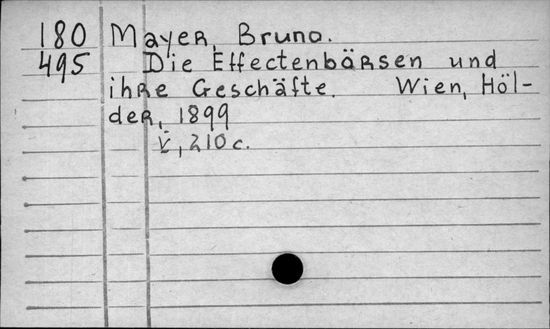 180 Mayer, Bruno.
495 Die Effectenbörsen und
ihre Geschäfte. Wien, Höl-
der, 1899
V, 210 c.